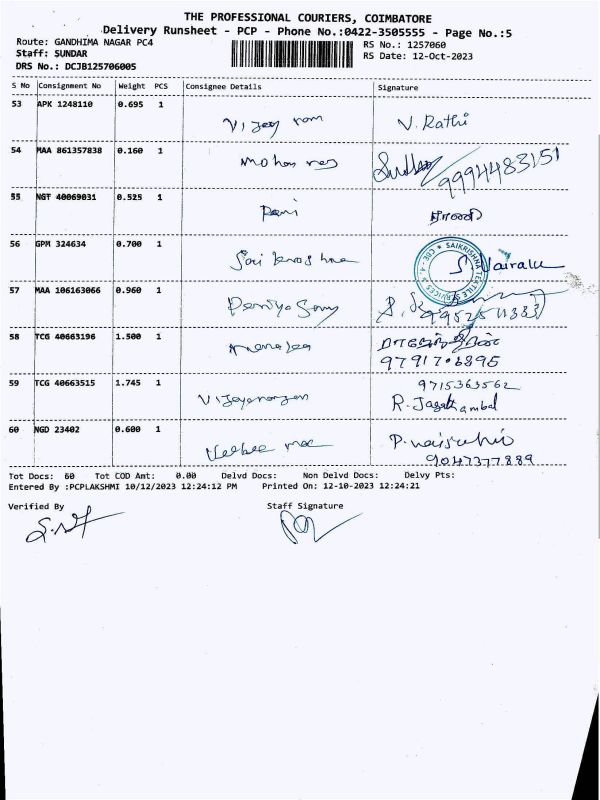 THE PROFESSIONAL COURIERS, COIMBATORE
Delivery Runsheet - PCP - Phone No.:0422-3505555 - Page No.:5
Route: GANDHIMA NAGAR PC4
RS No.: 1257060
Staff: SUNDAR
RS Date: 12-Oct-2023
DRS No.: DCJB125706005
S No Consignment No Weight PCS Consignee Details Signature
53 APK 1248110 0.695 1
Vijay ram V. Rathi
54 MAA 861357838 0.160 1
Mohan raj 9994483151
55 NGT 40069031 0.525 1
Rani
56 GPM 324634 0.700 1
Sai krishna
57 MAA 106163066 0.960 1
Periyasamy
58 TCG 40663196 1.500 1
59 TCG 40663515 1.745 1
9715363562
Vijayarajan R. Jagathambal
60 NGD 23402 0.600 1
9047377889
Tot Docs: 60 Tot COD Amt: 0.00 Delvd Docs: Non Delvd Docs: Delvy Pts:
Entered By :PCPLAKSHMI 10/12/2023 12:24:12 PM Printed On: 12-10-2023 12:24:21
Verified By Staff Signature